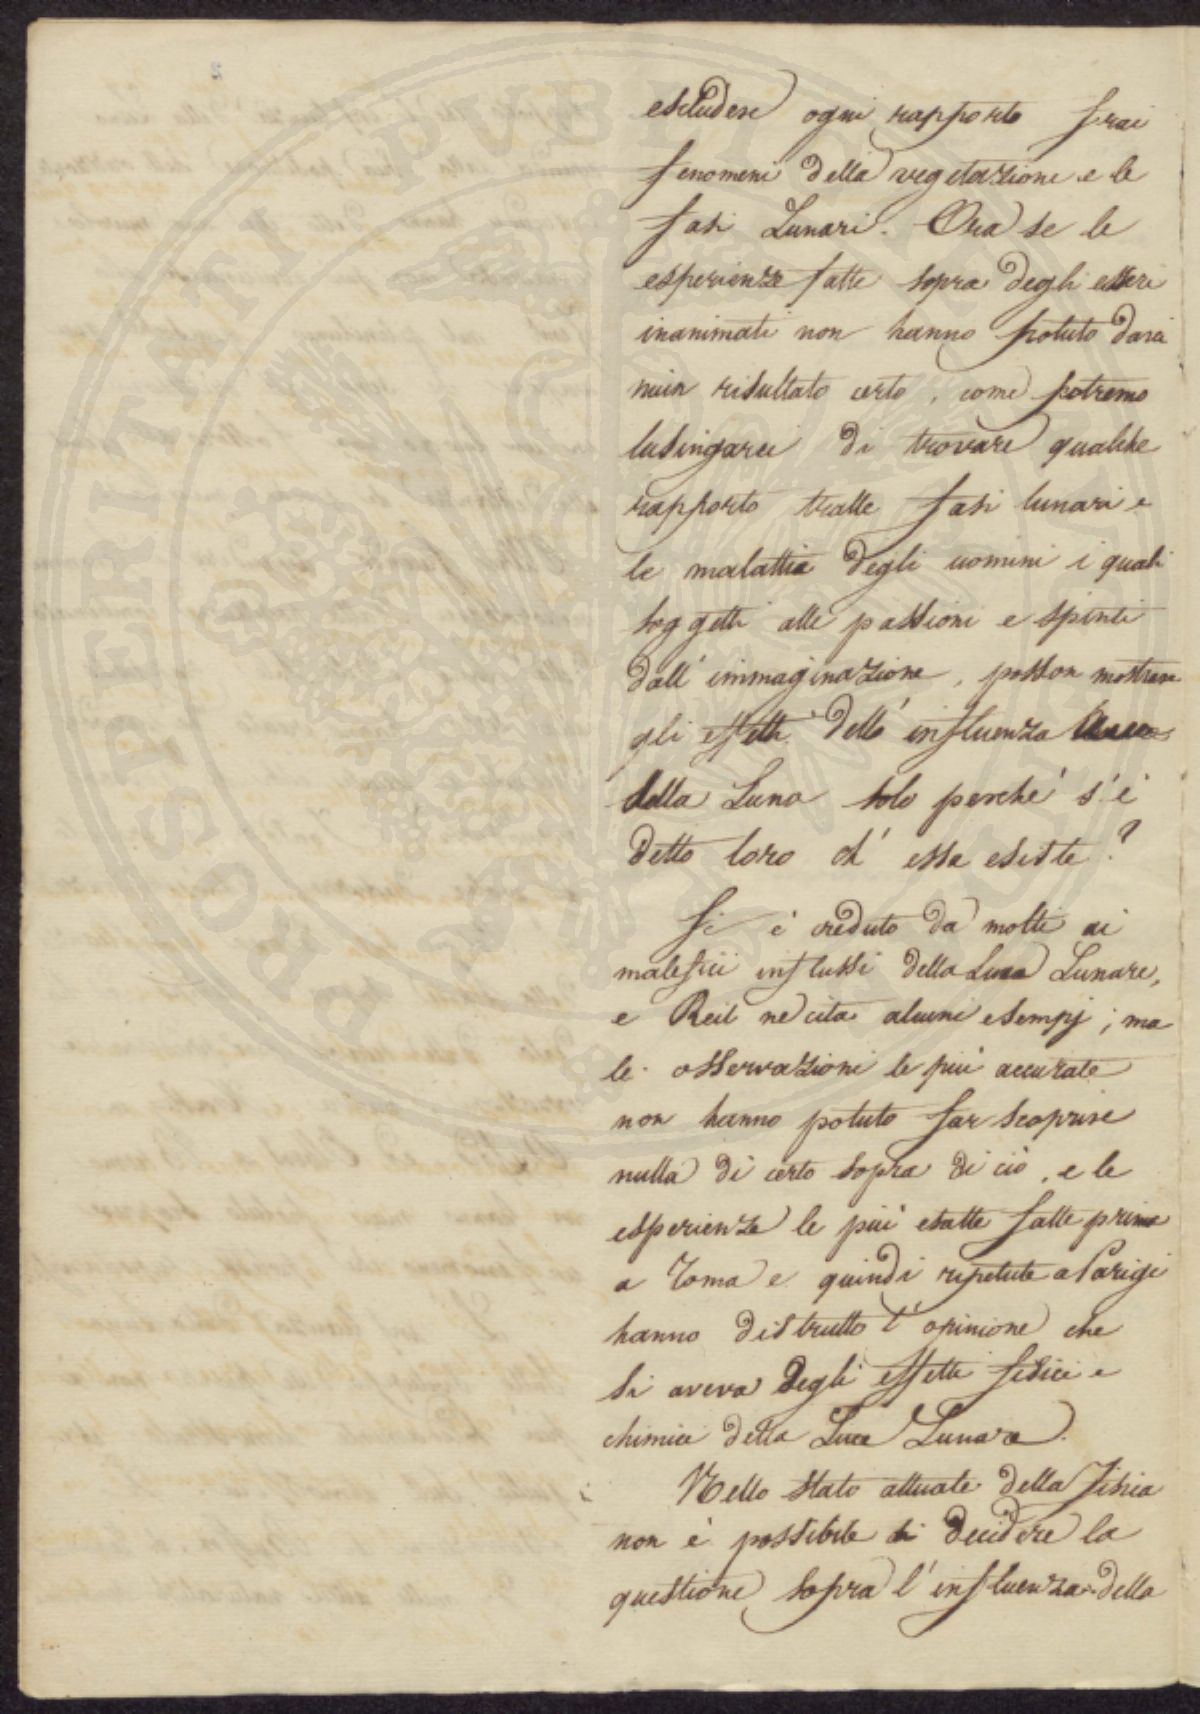 PROSPERITATI PUBLICAE
escludere ogni rapporto frai
fenomeni della vegetazione e le
fasi Lunari. Ora se le
esperienze fatte sopra degli esseri
inanimati non hanno potuto darci
niun risultato certo, come potremo
lusingarci di trovare qualche
rapporto tralle fasi lunari e
le malattie degli uomini i quali
soggetti alle passioni e spinti
dall' immaginazione, posson mostrare
gli effetti dell' influenza
della Luna solo perchè s'è
detto loro ch' essa esiste?
Si è creduto da molti ai
malefici influssi della Luce Lunare,
e Reil ne cita alcuni esempj; ma
le osservazioni le più accurate
non hanno potuto far scoprire
nulla di certo sopra di ciò, e le
esperienze le più esatte fatte prima
a Roma e quindi ripetute a Parigi
hanno distrutto l' opinione che
si aveva degli effetti fisici e
chimici della Luce Lunare.
Nello stato attuale della Fisica
non è possibile di decidere la
questione sopra l' influenza della